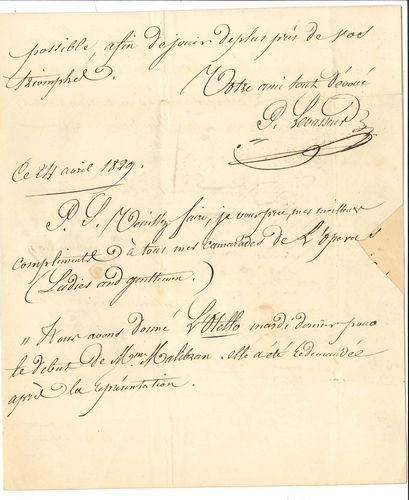 possible, afin de jouir de plus près de vos
triomphes.
Votre ami tout dévoué
P. Levasseur
Ce 24 avril 1829.
P. S. Veuillez faire, je vous prie, mes meilleurs
compliments à tous mes camarades de L'Opera
(Ladies and gentlemen)
" Nous avons donné L'Otello mardi dernier pour
le début de Mme Malibran. elle a été redemandée
après la représentation.